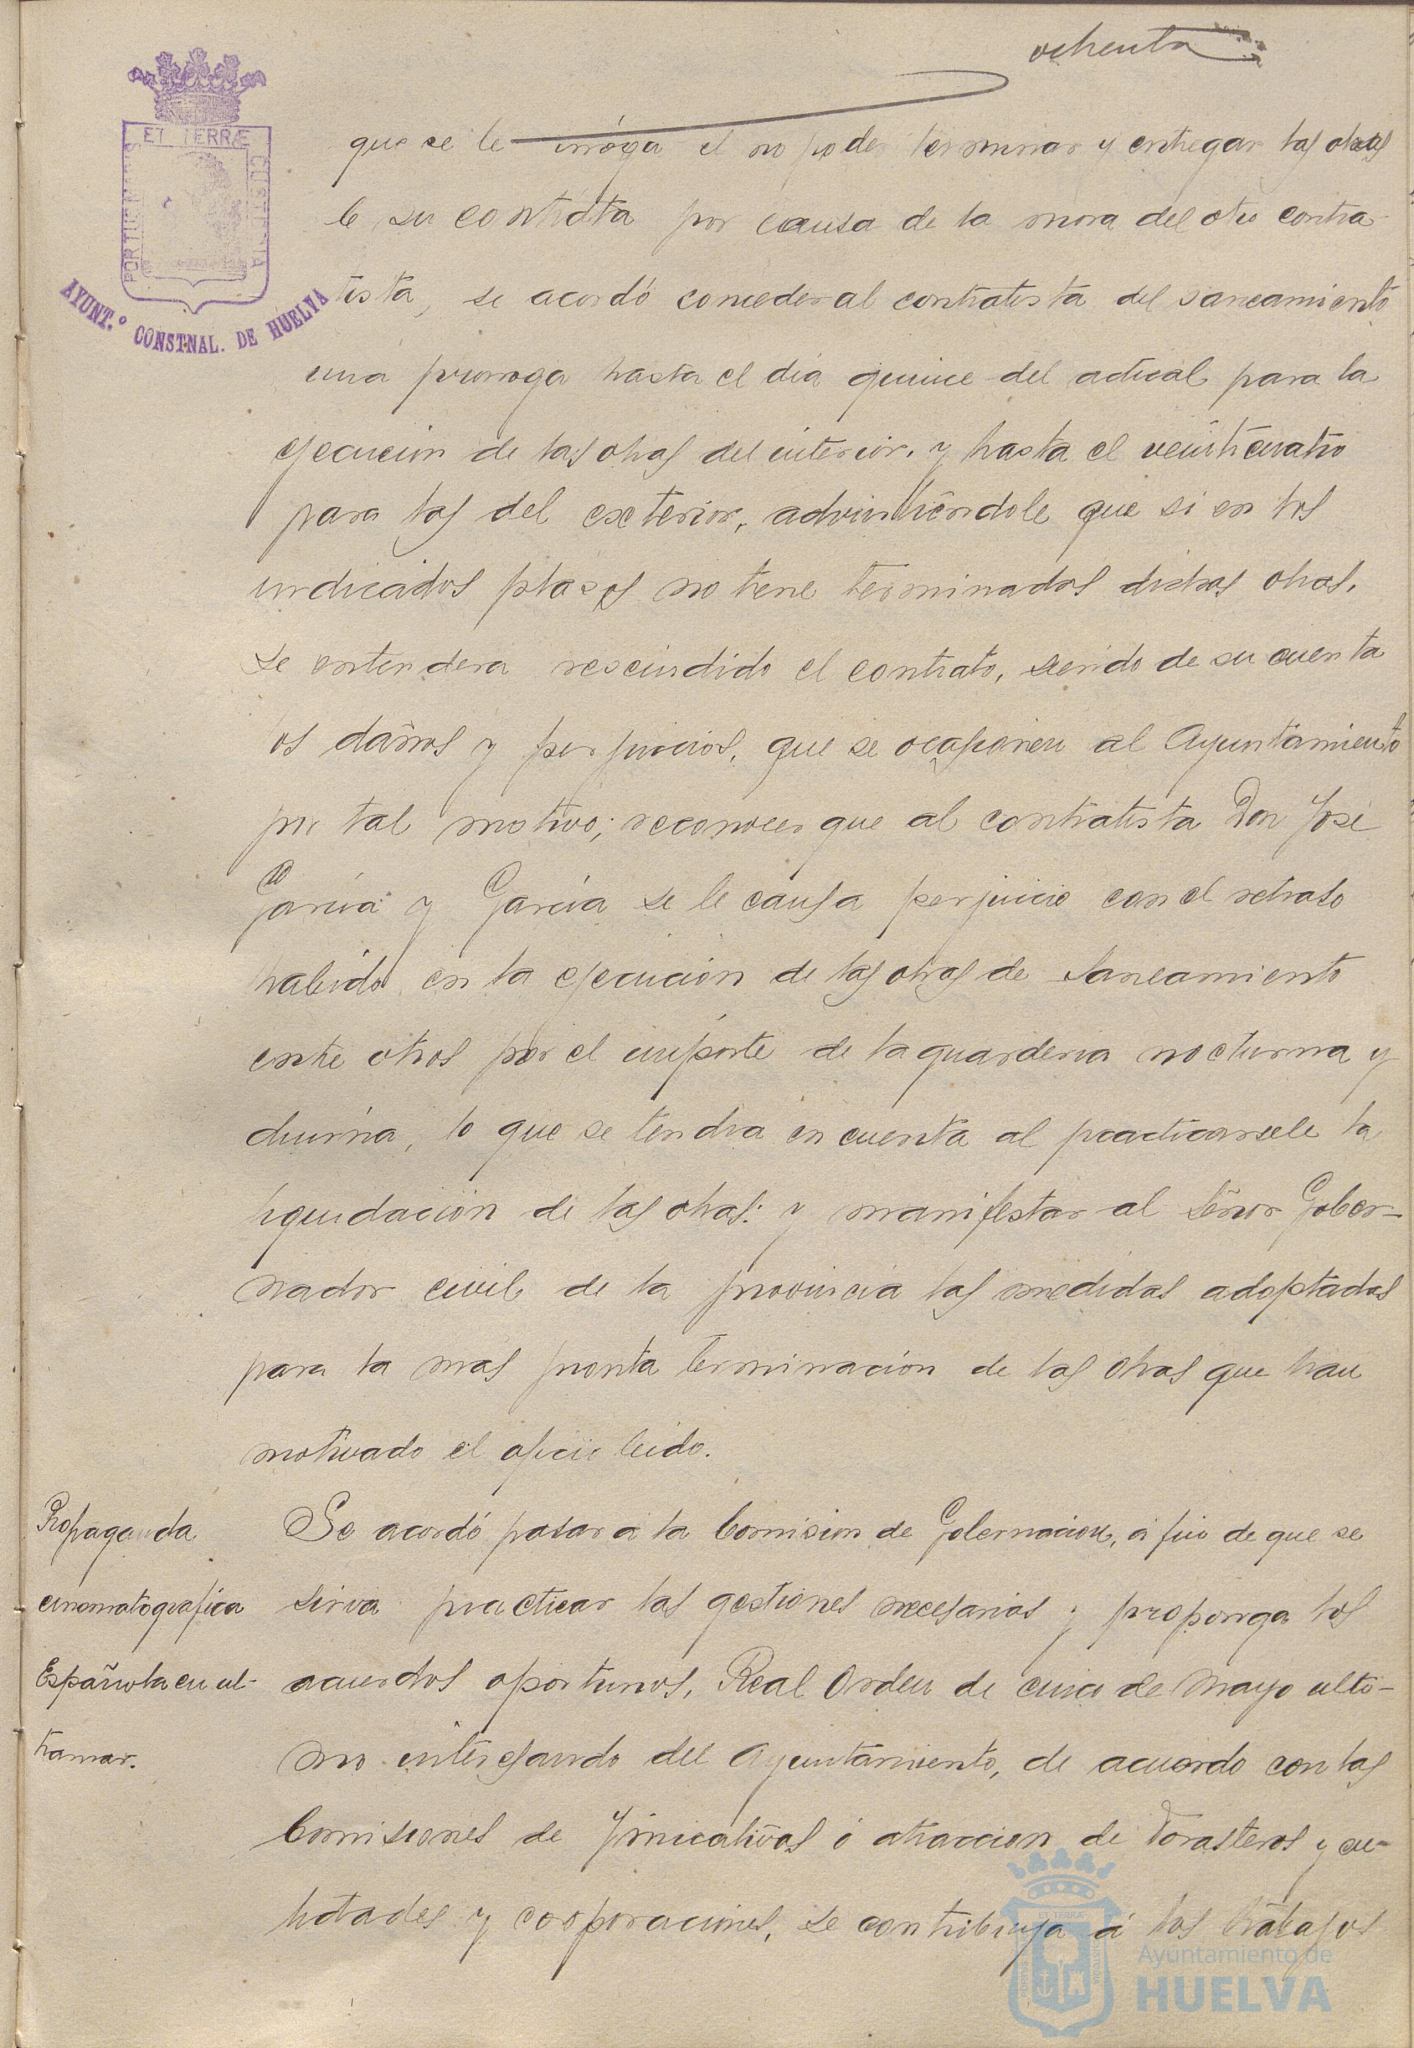 ochenta
ET TERRÆ
PORTUS MARIS
CUSTODIA
AYUNT.º CONSTNAL. DE HUELVA
que se le irróga el no poder terminar y entregar las obras
de su contrata por causa de la mora del otro contra-
tista, se acordó conceder al contratista del saneamiento
una prorroga hasta el día quince del actual para la
ejecución de las obras del interior, y hasta el veinticuatro
para las del exterior, advirtiéndole que si en los
indicados plazos no tiene terminadas dichas obras,
se entendera rescindido el contrato, siendo de su cuenta
los daños y perjuicios, que se ocasionen al Ayuntamiento
por tal motivo; reconocer que al contratista Don José
García y García se le causa perjuicio con el retraso
habido en la ejecución de las obras de saneamiento
entre otros por el importe de la guarderia nocturna y
diurna, lo que se tendra en cuenta al practicarsele la
liquidación de las obras: y manifestar al Señor Gober-
nador civil de la provincia las medidas adoptadas
para la mas pronta terminación de las obras que han
motivado el oficio leido.
Propaganda
cinematografica
Española en ul-
tramar.
Se acordó pasar a la Comision de Gobernacion, á fin de que se
sirva practicar las gestiones necesarias y proponga los
acuerdos oportunos, Real Orden de cinco de Mayo ulti-
mo interesando del Ayuntamiento, de acuerdo con las
Comisiones de Yniciativas ó atraccion de Forasteros y en-
tidades y corporaciones, se contribuya á los trabajos
Ayuntamiento de
HUELVA